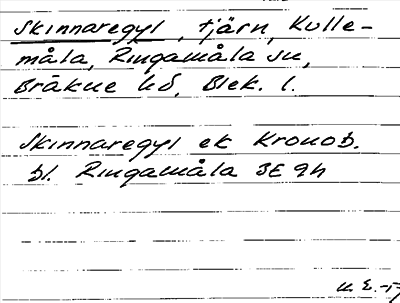 Skinnaregyl, tjärn, Kulle-
måla, Ringamåla sn,
Bräkne hd, Blek. l.
Skinnaregyl ek Kronob.
bl. Ringamåla 3E 9h